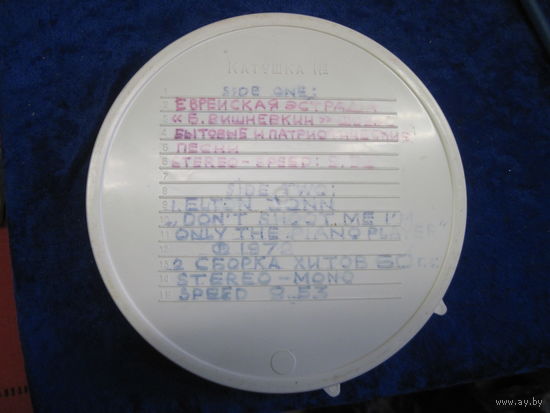 КАТУШКА №
1
SIDE ONE:
2 ЕВРЕЙСКАЯ ЭСТРАДА
3 «Б. ВИШНЕВКИН»
4 БЫТОВЫЕ И ПАТРИОТИЧЕСКИЕ
5 ПЕСНИ
6 STEREO-SPEED: 9.53
7
8 SIDE TWO:
9 1. ELTON JOHN
10 „DON'T SHOOT ME I'M
11 ONLY THE PIANO PLAYER"
12
13 2 СБОРКА ХИТОВ 60 г.г.
14 STEREO-MONO
15 SPEED 9.53
www.ay.by